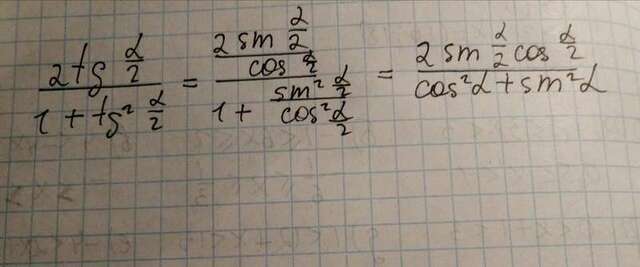 2tg α/2 / (1 + tg² α/2) = (2 sin α/2 / cos α/2) / (1 + sin² α/2 / cos² α/2) = 2 sin α/2 cos α/2 / (cos²α + sin²α)